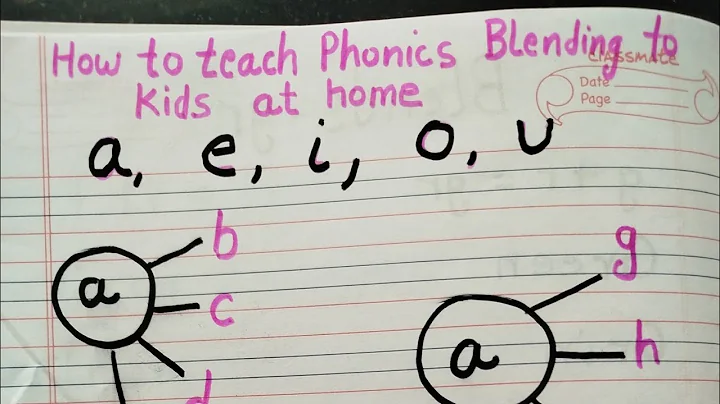 How to teach Phonics Blending to
Kids at home
CLASSMATE
Date
Page
a, e, i, o, u
b
a
c
d
g
a
h